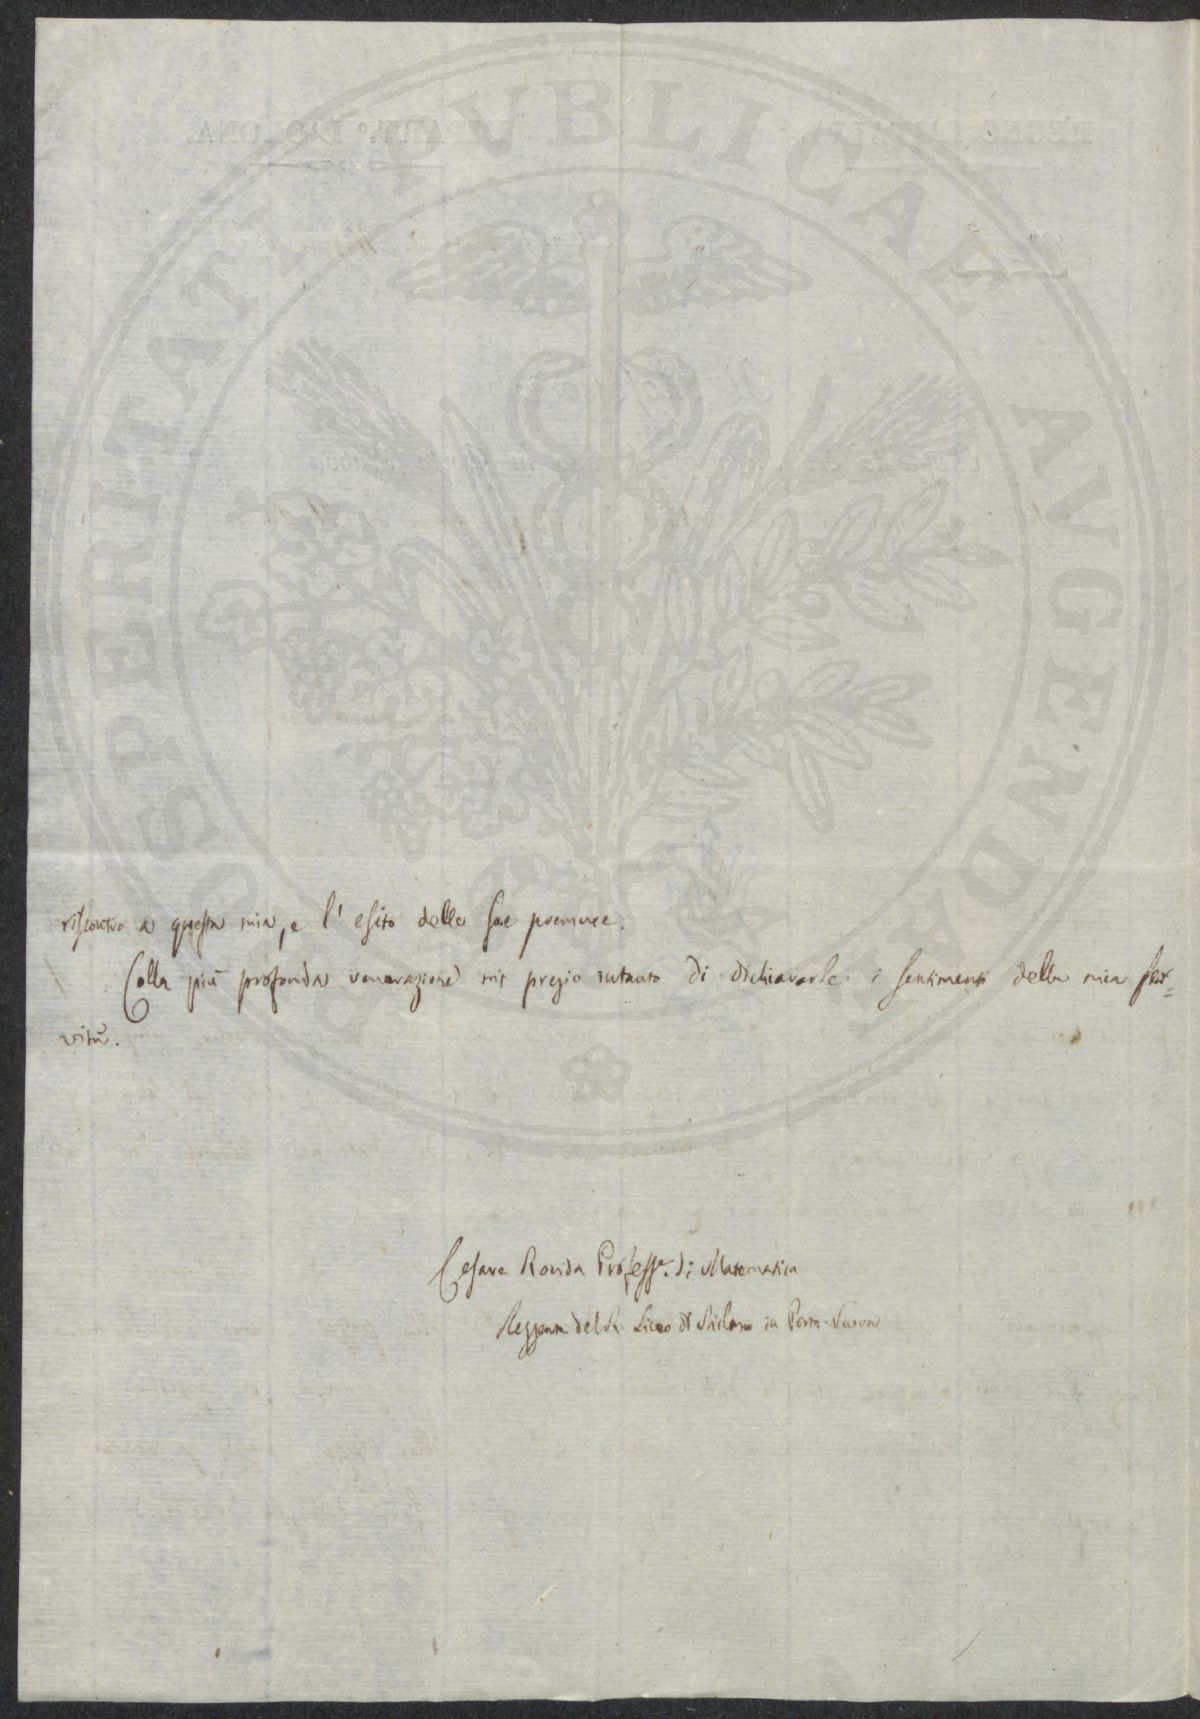 PROSPERITATI PVBLICAE AVGENDAE
riscontro a questa mia, e l'esito delle sue premure.
Colla più profonda venerazione mi pregio intanto di dichiararle i sentimenti della mia ser=
vitù.
Cesare Rovida Profess.e di Matematica
Reggente del R. Liceo di Milano in Porta Nuova